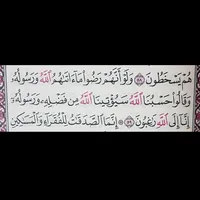 هُمْ يَسْخَطُونَ ۝٥٨ وَلَوْ أَنَّهُمْ رَضُوا۟ مَآ ءَاتَىٰهُمُ ٱللَّهُ وَرَسُولُهُۥ
وَقَالُوا۟ حَسْبُنَا ٱللَّهُ سَيُؤْتِينَا ٱللَّهُ مِن فَضْلِهِۦ وَرَسُولُهُۥٓ
إِنَّآ إِلَى ٱللَّهِ رَٰغِبُونَ ۝٥٩ إِنَّمَا ٱلصَّدَقَٰتُ لِلْفُقَرَآءِ وَٱلْمَسَٰكِينِ